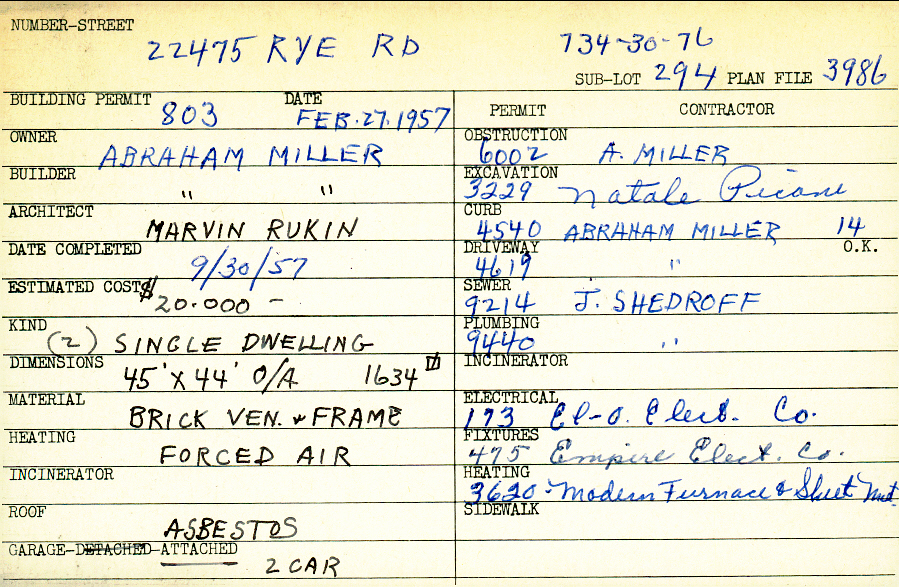 NUMBER-STREET
22475 RYE RD 734-30-76
SUB-LOT 294 PLAN FILE 3986
BUILDING PERMIT 803 DATE FEB. 27. 1957
OWNER ABRAHAM MILLER
BUILDER " "
ARCHITECT MARVIN RUKIN
DATE COMPLETED 9/30/57
ESTIMATED COST $20.000 -
KIND (2) SINGLE DWELLING
DIMENSIONS 45' X 44' O/A 1634
MATERIAL BRICK VEN. & FRAME
HEATING FORCED AIR
INCINERATOR
ROOF ASBESTOS
GARAGE-DETACHED-ATTACHED
2 CAR
PERMIT CONTRACTOR
OBSTRUCTION 6002 A. MILLER
EXCAVATION 3229 Natale Picone
CURB 4540 ABRAHAM MILLER 14
DRIVEWAY 4619 " O.K.
SEWER 9214 J. SHEDROFF
PLUMBING 9440 "
INCINERATOR
ELECTRICAL 193 El-O. Elect. Co.
FIXTURES 475 Empire Elect. Co.
HEATING 3620 Modern Furnace & Sheet Mtl
SIDEWALK